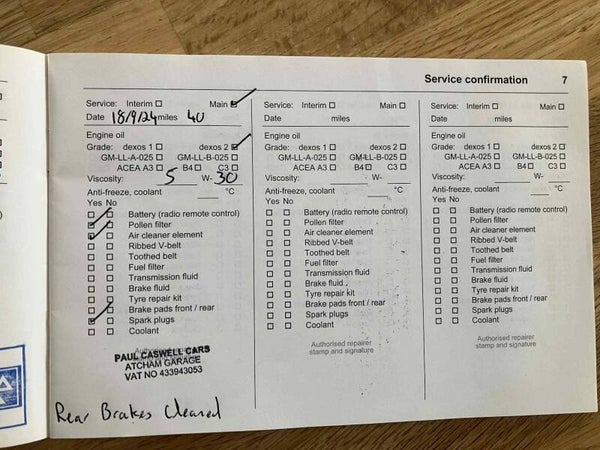 Service confirmation 7
Service: Interim ☐ Main ☑
Date 18/9/24 miles 40
Engine oil
Grade: dexos 1 ☐ dexos 2 ☑
GM-LL-A-025 ☐ GM-LL-B-025 ☐
ACEA A3 ☐ B4 ☐ C3 ☐
Viscosity: 5 W- 30
Anti-freeze, coolant °C
Yes No
Battery (radio remote control)
Pollen filter
Air cleaner element
Ribbed V-belt
Toothed belt
Fuel filter
Transmission fluid
Brake fluid
Tyre repair kit
Brake pads front / rear
Spark plugs
Coolant
Authorised
PAUL CASWELL CARS
ATCHAM GARAGE
VAT NO 433943053
Rear Brakes Cleaned
Service: Interim ☐ Main ☐
Date miles
Engine oil
Grade: dexos 1 ☐ dexos 2 ☐
GM-LL-A-025 ☐ GM-LL-B-025 ☐
ACEA A3 ☐ B4 ☐ C3 ☐
Viscosity: W-
Anti-freeze, coolant °C
Yes No
Battery (radio remote control)
Pollen filter
Air cleaner element
Ribbed V-belt
Toothed belt
Fuel filter
Transmission fluid
Brake fluid
Tyre repair kit
Brake pads front / rear
Spark plugs
Coolant
Authorised repairer
stamp and signature
Service: Interim ☐ Main ☐
Date miles
Engine oil
Grade: dexos 1 ☐ dexos 2 ☐
GM-LL-A-025 ☐ GM-LL-B-025 ☐
ACEA A3 ☐ B4 ☐ C3 ☐
Viscosity: W-
Anti-freeze, coolant °C
Yes No
Battery (radio remote control)
Pollen filter
Air cleaner element
Ribbed V-belt
Toothed belt
Fuel filter
Transmission fluid
Brake fluid
Tyre repair kit
Brake pads front / rear
Spark plugs
Coolant
Authorised repairer
stamp and signature